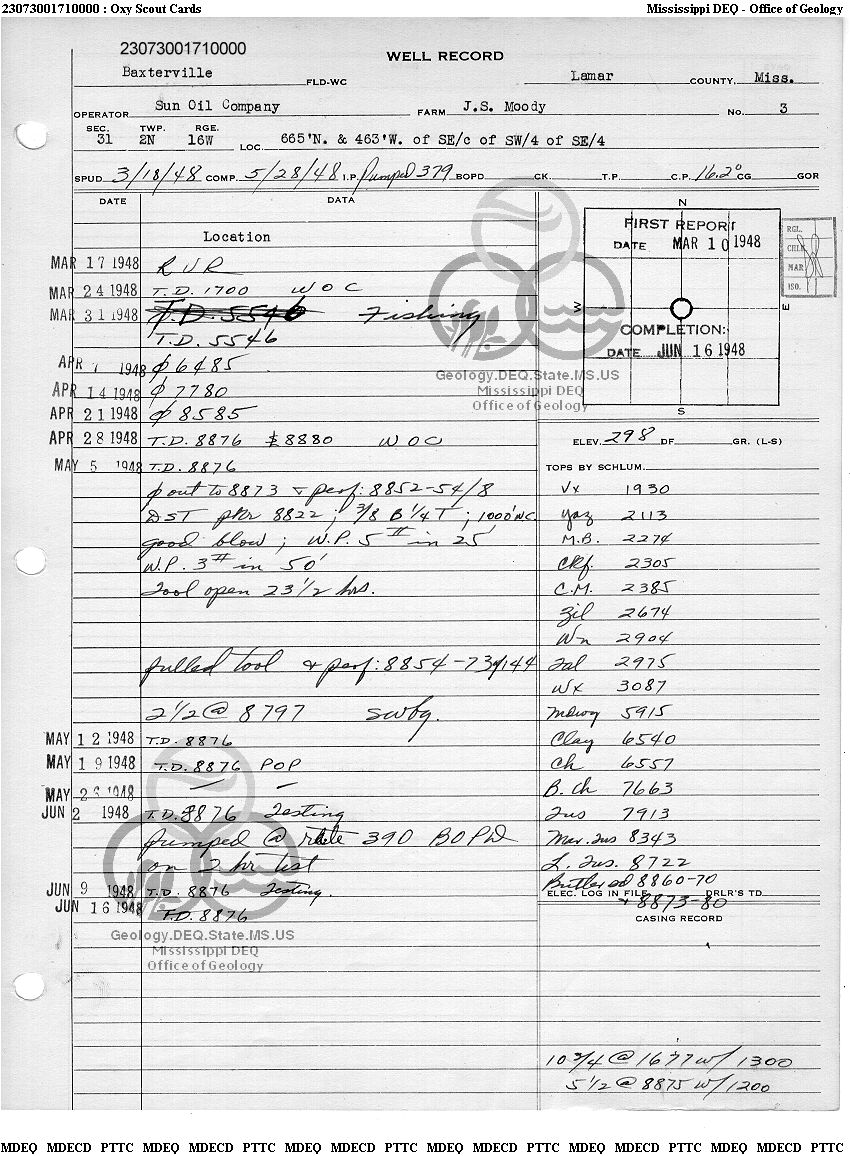 23073001710000 : Oxy Scout Cards Mississippi DEQ - Office of Geology
23073001710000
WELL RECORD
Baxterville FLD-WC Lamar COUNTY, Miss.
OPERATOR Sun Oil Company FARM J.S. Moody No. 3
SEC. TWP. RGE.
31 2N 16W LOC. 665'N. & 463'W. of SE/c of SW/4 of SE/4
SPUD 3/18/48 COMP. 5/28/48 I.P. Pumped 379 BOPD CK. T.P. C.P. 16.2° CG GOR
DATE DATA
Location
MAR 17 1948 RUR
MAR 24 1948 T.D. 1700 WOC
MAR 31 1948 T.D. 5546 Fishing
T.D. 5546
APR 7 1948 φ 6485
APR 14 1948 φ 7780
APR 21 1948 φ 8585
APR 28 1948 T.D. 8876 $ 8880 WOC
MAY 5 1948 T.D. 8876
p out to 8873 & perf: 8852-54/8
DST pkr 8822; 3/8 B 1/4 T; 1000' NC
good blow; W.P. 5# in 25'
W.P. 3# in 50'
Tool open 23 1/2 hrs.
pulled tool & perf: 8854-73/144
2 1/2 @ 8797 swbg.
MAY 12 1948 T.D. 8876
MAY 19 1948 T.D. 8876 POP
MAY 26 1948 — —
JUN 2 1948 T.D. 8876 Testing
pumped @ rate 390 BOPD
on 2 hr test
JUN 9 1948 T.D. 8876 Testing.
JUN 16 1948 T.D. 8876
N
FIRST REPORT
DATE MAR 10 1948
W E
COMPLETION:
DATE JUN 16 1948
S
RGL.
CHLK
MAR.
ISO.
Geology.DEQ.State.MS.US
Mississippi DEQ
Office of Geology
ELEV. 298 DF GR. (L-S)
TOPS BY SCHLUM.
Vx 1930
Yaz 2113
M.B. 2274
Ckf. 2305
C.M. 2385
Zil 2674
Wn 2904
Tal 2975
Wx 3087
Mdwy 5915
Clay 6540
Ch 6557
B. Ch 7663
Tus 7913
Mar. Tus 8343
L. Tus. 8722
Butler sd 8860-70
ELEC. LOG IN FILE DRLR'S TD
& 8873-80
CASING RECORD
10 3/4 @ 1677 w/ 1300
5 1/2 @ 8875 w/ 1200
Geology.DEQ.State.MS.US
Mississippi DEQ
Office of Geology
MDEQ MDECD PTTC MDEQ MDECD PTTC MDEQ MDECD PTTC MDEQ MDECD PTTC MDEQ MDECD PTTC MDEQ MDECD PTTC